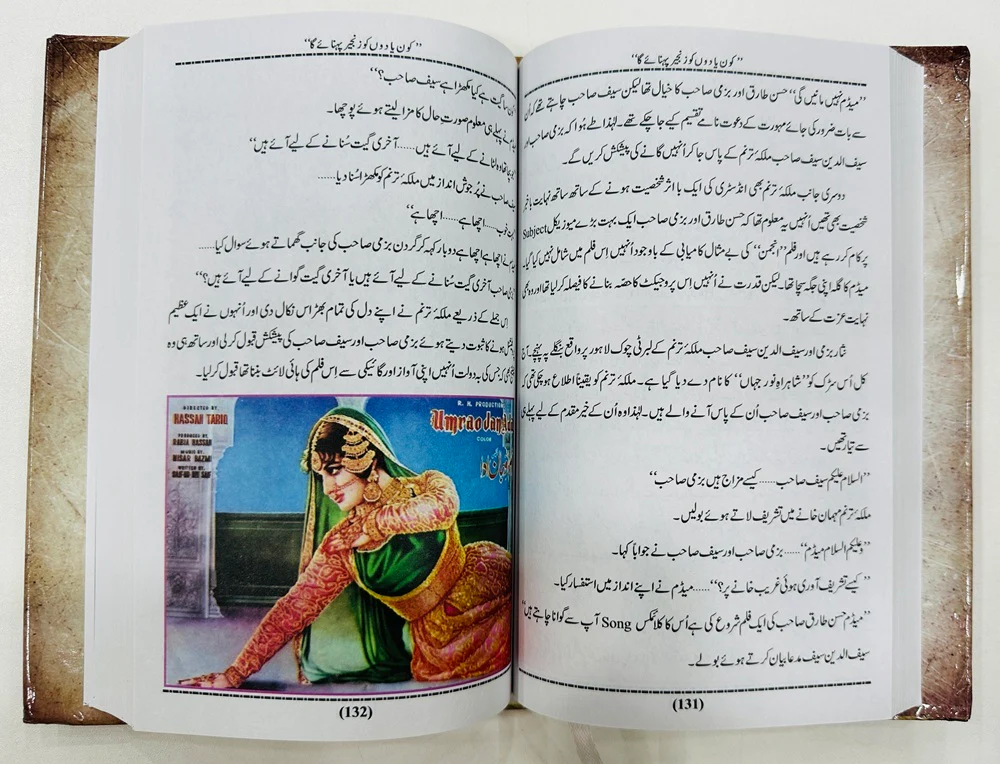 ’’ کون یادوں کو زنجیر پہنائے گا‘‘
’’میڈم نہیں مانیں گی‘‘ حسن طارق اور بزمی صاحب کا خیال تھا لیکن سیف صاحب چاہتے تھے کہ اُن
سے بات ضرور کی جائے مہورت کے دعوت نامے تقسیم کیے جا چکے تھے۔ لہٰذا طے ہُوا کہ بزمی صاحب اور
سیف الدین سیف صاحب ملکۂ ترنم کے پاس جا کر اُنہیں گانے کی پیشکش کریں گے۔
دوسری جانب ملکۂ ترنم بھی انڈسٹری کی ایک با اثر شخصیت ہونے کے ساتھ ساتھ نہایت باخبر
شخصیت بھی تھیں اُنہیں یہ معلوم تھا کہ حسن طارق اور بزمی صاحب ایک بہت بڑے میوزیکل Subject
پر کام کر رہے ہیں اور فلم ’’انجمن‘‘ کی بے مثال کامیابی کے باوجود اُنہیں اِس فلم میں شامل نہیں کیا گیا۔
میڈم کا گلہ اپنی جگہ سچا تھا۔ لیکن قدرت نے اُنہیں اِس پروجیکٹ کا حصہ بنانے کا فیصلہ کر لیا تھا اور وہ بھی
نہایت عزت کے ساتھ۔
نثار بزمی اور سیف الدین سیف صاحب ملکۂ ترنم کے لبرٹی چوک لاہور پر واقع بنگلے پہ پہنچے۔ آج
کل اُس سڑک کو ’’شاہراہِ نور جہاں‘‘ کا نام دے دیا گیا ہے۔ ملکۂ ترنم کو یقیناً اطلاع ہو چکی تھی کہ
بزمی صاحب اور سیف صاحب اُن کے پاس آنے والے ہیں۔ لہٰذا وہ اُن کے خیر مقدم کے لیے پہلے ہی
سے تیار تھیں۔
’’السلام علیکم سیف صاحب...... کیسے مزاج ہیں بزمی صاحب‘‘
ملکۂ ترنم مہمان خانے میں تشریف لاتے ہوئے بولیں۔
’’وعلیکم السلام میڈم‘‘...... بزمی صاحب اور سیف صاحب نے جواباً کہا۔
’’ کیسے تشریف آوری ہوئی غریب خانے پر؟‘‘...... میڈم نے اپنے انداز میں استفسار کیا۔
’’میڈم حسن طارق صاحب کی ایک فلم شروع کی ہے اُس کا کلائمکس Song آپ سے گوانا چاہتے ہیں‘‘
سیف الدین سیف مدعا بیان کرتے ہوئے بولے۔
(131)
’’ کون یادوں کو زنجیر پہنائے گا‘‘
سا گیت ہے کیا مکھڑا ہے سیف صاحب؟‘‘
نے پہلے ہی معلوم صورتِ حال کا مزا لیتے ہوئے پوچھا۔
لٹانے کے لیے آئے ہیں...... آخری گیت سُنانے کے لیے آئے ہیں‘‘
صاحب نے پُر جوش انداز میں ملکۂ ترنم کو مکھڑا سُنا دیا......
خوب...... اچھا ہے...... اچھا ہے‘‘
نے اچھا ہے اچھا ہے دو بار کہہ کر گردن بزمی صاحب کی جانب گھماتے ہوئے سوال کیا......
صاحب آخری گیت سُنانے کے لیے آئے ہیں یا آخری گیت گوانے کے لیے آئے ہیں؟‘‘
اِس جملے کے ذریعے ملکۂ ترنم نے اپنے دل کی تمام بھڑاس نکال دی اور اُنہوں نے ایک عظیم
ہونے کا ثبوت دیتے ہوئے بزمی صاحب اور سیف صاحب کی پیشکش قبول کر لی اور ساتھ ہی وہ
بھی کہ جس کی بہ دولت اُنہیں اپنی آواز اور گائیکی سے اِس فلم کی ہائی لائٹ بننا تھا قبول کر لیا۔
R. H. PRODUCTION
Umrao Jan Ada
COLOR
DIRECTED BY
HASSAN TARIQ
PRODUCED BY
RABIA HASSAN
MUSIC BY
NISAR BAZMI
WRITTEN BY
SAIF-UD-DIN SAIF
(132)